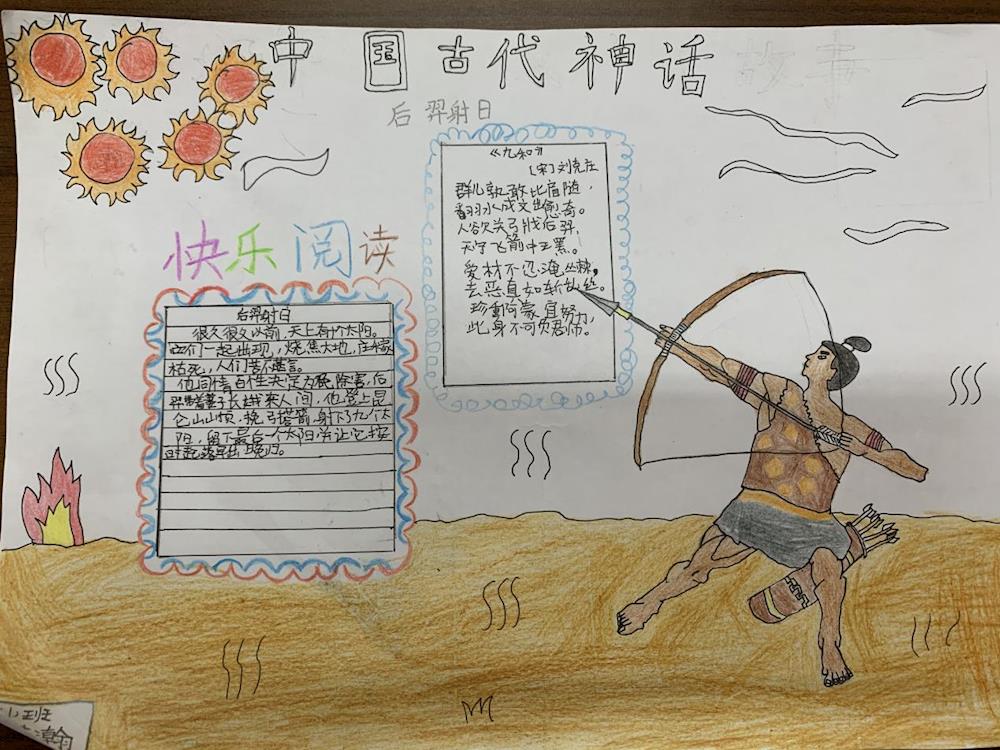 中国古代神话故事
后羿射日
《九和》
[宋]刘克庄
群儿孰敢比肩随,
翻水成文出愈奇。
人欲关弓戕后羿,
天宁飞箭中王罴。
爱材不忍淹丛棘,
去恶真如斩乱丝。
珍重阿蒙宜努力,
此身不可负君师。
快乐阅读
后羿射日
很久很久以前,天上有十个太阳。
它们一起出现,烧焦大地,庄稼
枯死,人们苦不堪言。
他同情百姓决定为民除害,后
羿带着妻子嫦娥来人间,他登上昆
仑山山顶,挽弓搭箭,射下了九个太
阳,留下最后一个太阳并让它按
时起落早出晚归。
班
瀚